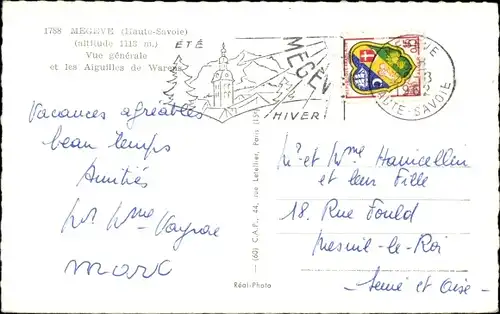 1788 MEGEVE (Haute-Savoie)
(altitude 1113 m.)
Vue générale
et les Aiguilles de Warens
ÉTÉ
MEGÈVE
HIVER
HAUTE-SAVOIE
Vacances agréables
beau temps
Amitiés
Mr Mme
Marc
Mr et Mme Hanicellin
et leur Fille
18. Rue Fould
Mesnil-le-Roi
Seine et Oise
(60) C.A.P., 44, rue Letellier, Paris (15e)
Réal-Photo